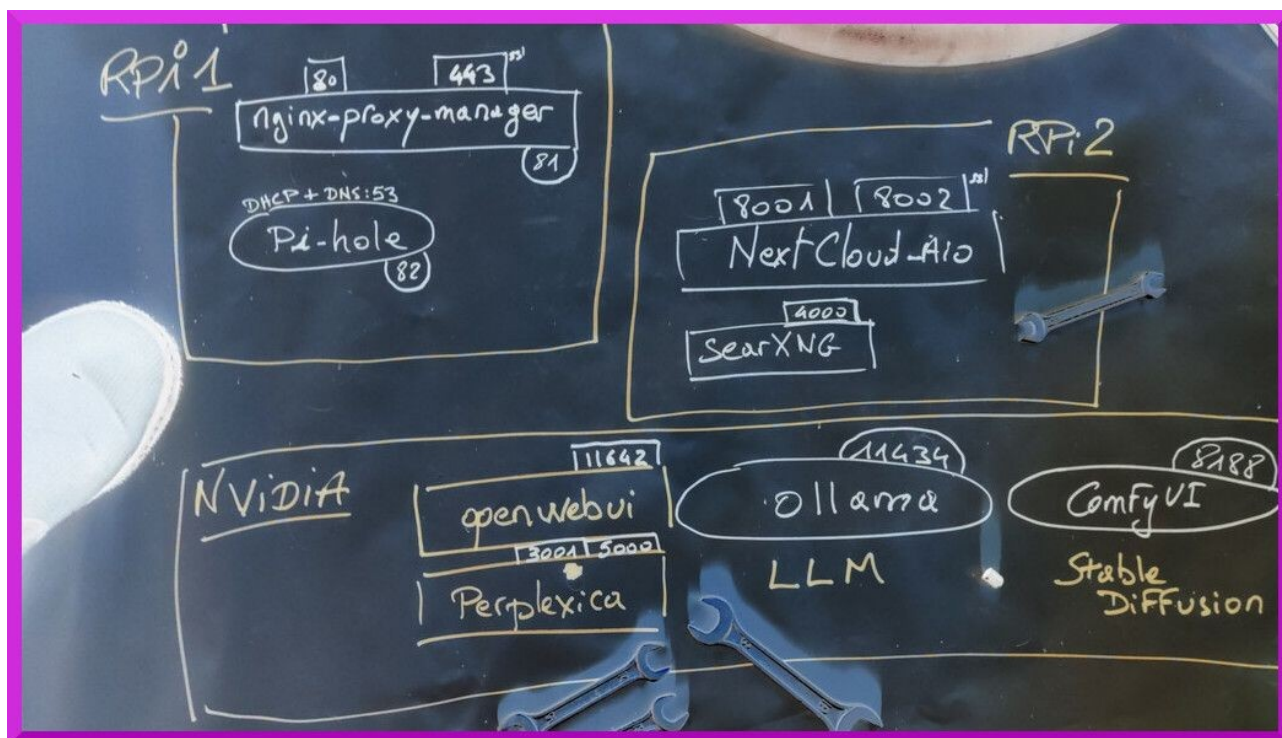 RPi1
80
443 ssl
nginx-proxy-manager
81
DHCP + DNS:53
Pi-hole
82
RPi2
8001
8002 ssl
NextCloud-Aio
4000
SearXNG
NViDiA
11642
openwebui
3001 5000
Perplexica
11434
ollama
LLM
8188
ComfyUI
Stable
Diffusion